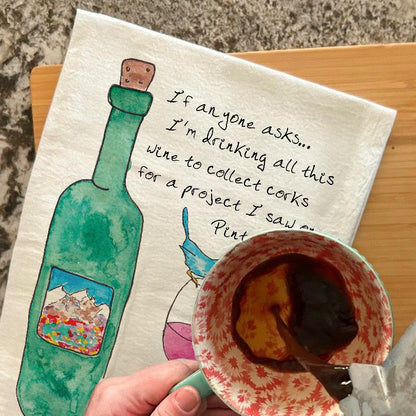 If anyone asks...
I'm drinking all this
wine to collect corks
for a project I saw